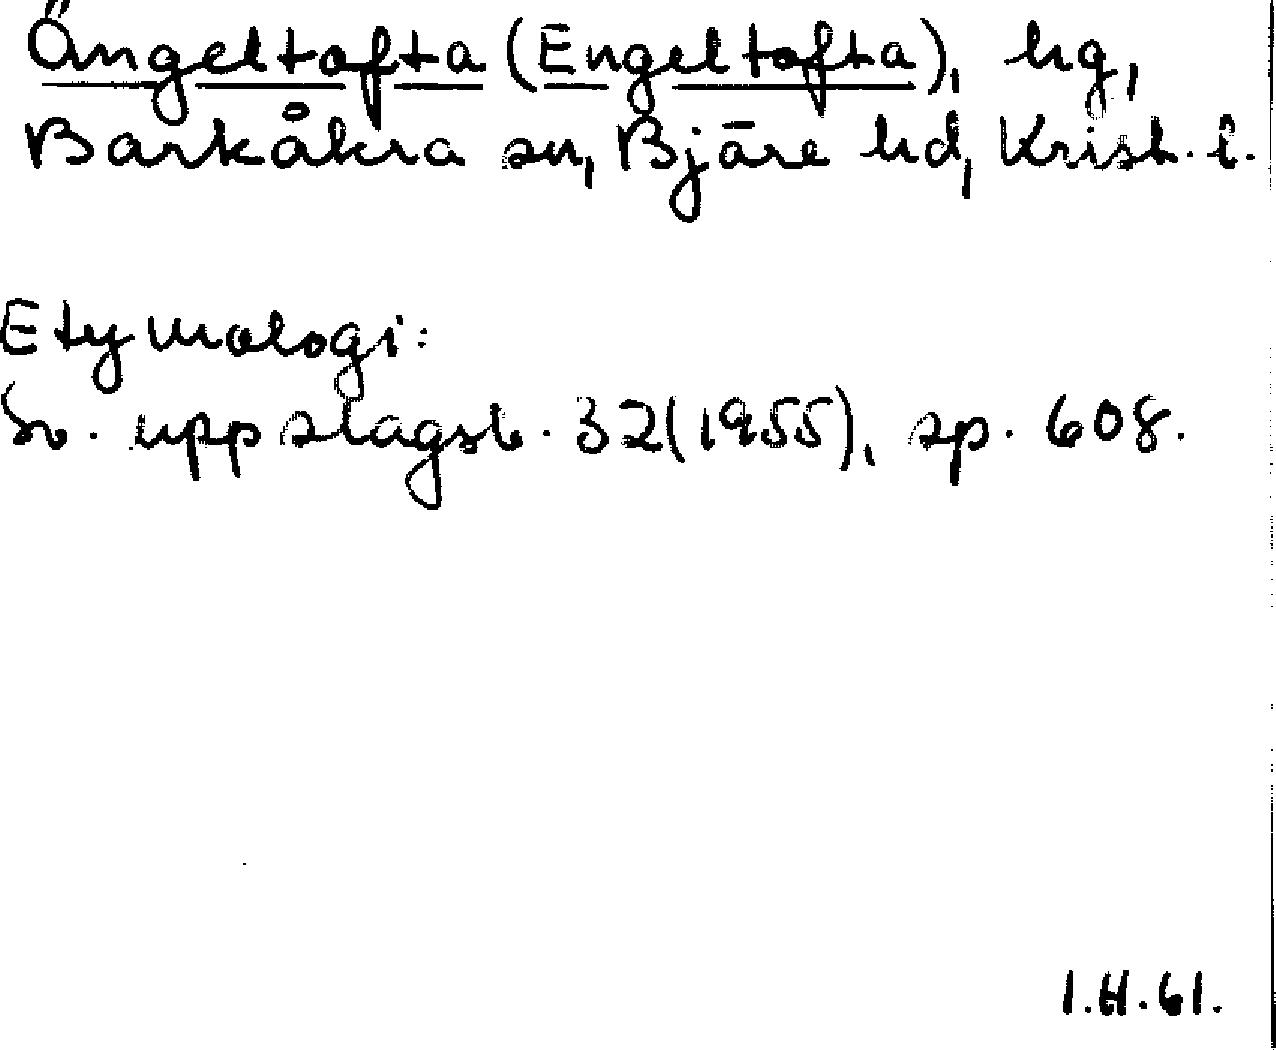 Ängeltofta (Engeltofta), hg,
Barkåkra sn, Bjäre hd, Krist. l.
Etymologi:
Sv. uppslagsb. 32(1955), sp. 608.
I.H.61.